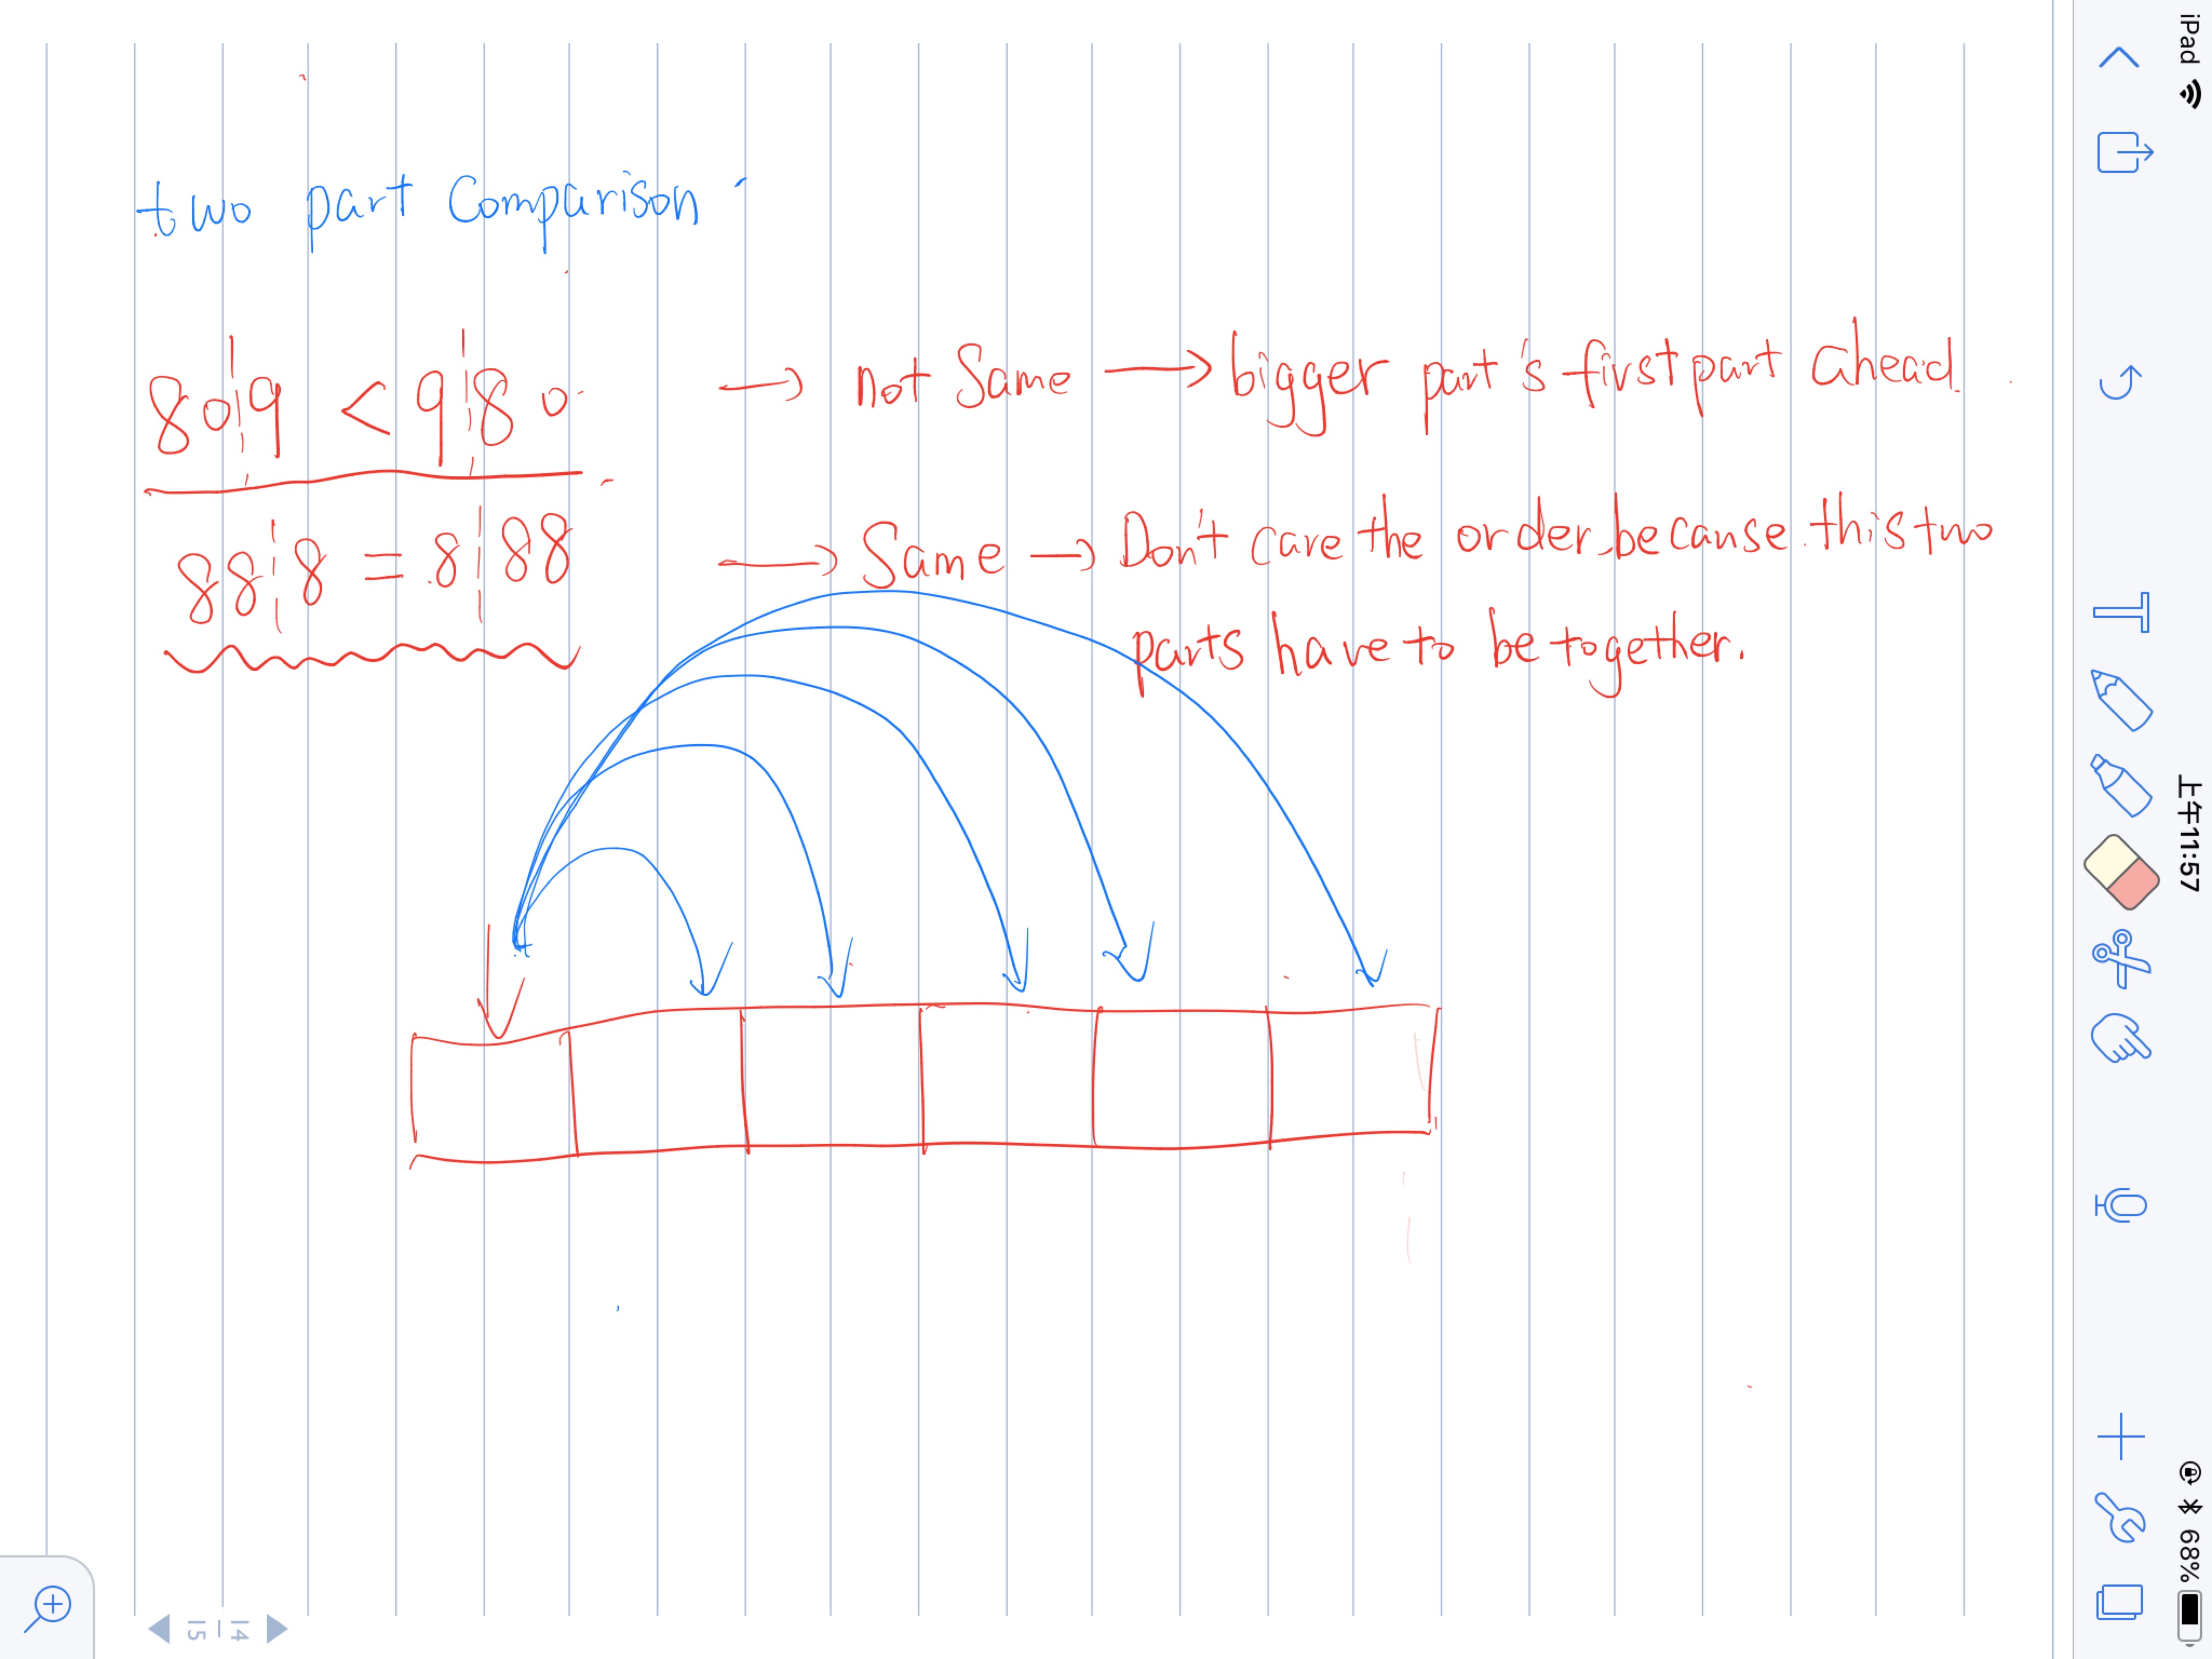 iPad
上午11:57
68%
two part Comparison
80|9 < 9|80 → not Same → bigger part's first part ahead.
88|8 = 8|88 → Same → Don't care the order, because this two
parts have to be together.
14
15